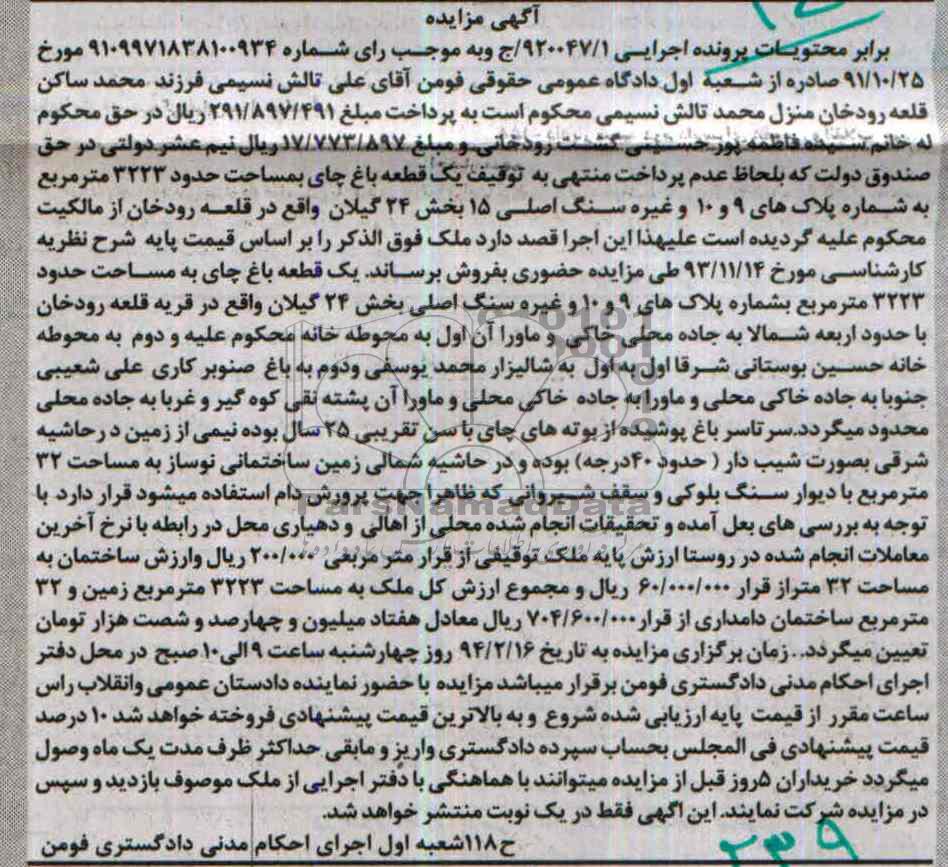 آگهی مزایده
برابر محتویات پرونده اجرایی ۹۲۰۰۴۷/۱/ج وبه موجب رای شماره ۹۱۰۹۹۷۱۸۳۸۱۰۰۹۳۴ مورخ
۹۱/۱۰/۲۵ صادره از شعبه اول دادگاه عمومی حقوقی فومن آقای علی تالش نسیمی فرزند محمد ساکن
قلعه رودخان منزل محمد تالش نسیمی محکوم است به پرداخت مبلغ ۲۹۱/۸۹۷/۴۹۱ ریال در حق محکوم
له خانم سیده فاطمه پور حسینی گشت رودخانی و مبلغ ۱۷/۷۷۳/۸۹۷ ریال نیم عشر دولتی در حق
صندوق دولت که بلحاظ عدم پرداخت منتهی به توقیف یک قطعه باغ چای بمساحت حدود ۳۲۲۳ مترمربع
به شماره پلاک های ۹ و ۱۰ و غیره سنگ اصلی ۱۵ بخش ۲۴ گیلان واقع در قلعه رودخان از مالکیت
محکوم علیه گردیده است علیهذا این اجرا قصد دارد ملک فوق الذکر را بر اساس قیمت پایه شرح نظریه
کارشناسی مورخ ۹۳/۱۱/۱۴ طی مزایده حضوری بفروش برساند. یک قطعه باغ چای به مساحت حدود
۳۲۲۳ مترمربع بشماره پلاک های ۹ و ۱۰ و غیره سنگ اصلی بخش ۲۴ گیلان واقع در قریه قلعه رودخان
با حدود اربعه شمالا به جاده محلی خاکی و ماورا آن اول به محوطه خانه محکوم علیه و دوم به محوطه
خانه حسین بوستانی شرقا اول به اول به شالیزار محمد یوسفی ودوم به باغ صنوبر کاری علی شعیبی
جنوبا به جاده خاکی محلی و ماورا به جاده خاکی محلی و ماورا آن پشته نقی کوه گیر و غربا به جاده محلی
محدود میگردد.سرتاسر باغ پوشیده از بوته های چای با سن تقریبی ۲۵ سال بوده نیمی از زمین در حاشیه
شرقی بصورت شیب دار ( حدود ۴۰درجه) بوده و در حاشیه شمالی زمین ساختمانی نوساز به مساحت ۳۲
مترمربع با دیوار سنگ بلوکی و سقف شیروانی که ظاهرا جهت پرورش دام استفاده میشود قرار دارد با
توجه به بررسی های بعل آمده و تحقیقات انجام شده محلی از اهالی و دهیاری محل در رابطه با نرخ آخرین
معاملات انجام شده در روستا ارزش پایه ملک توقیفی از قرار متر مربعی ۲۰۰/۰۰۰ ریال وارزش ساختمان به
مساحت ۳۲ متراز قرار ۶۰/۰۰۰/۰۰۰ ریال و مجموع ارزش کل ملک به مساحت ۳۲۲۳ مترمربع زمین و ۳۲
مترمربع ساختمان دامداری از قرار ۷۰۴/۶۰۰/۰۰۰ ریال معادل هفتاد میلیون و چهارصد و شصت هزار تومان
تعیین میگردد..زمان برگزاری مزایده به تاریخ ۹۴/۲/۱۶ روز چهارشنبه ساعت ۹ الی۱۰ صبح در محل دفتر
اجرای احکام مدنی دادگستری فومن برقرار میباشد مزایده با حضور نماینده دادستان عمومی وانقلاب راس
ساعت مقرر از قیمت پایه ارزیابی شده شروع و به بالاترین قیمت پیشنهادی فروخته خواهد شد ۱۰ درصد
قیمت پیشنهادی فی المجلس بحساب سپرده دادگستری واریز و مابقی حداکثر ظرف مدت یک ماه وصول
میگردد خریداران ۵روز قبل از مزایده میتوانند با هماهنگی با دفتر اجرایی از ملک موصوف بازدید و سپس
در مزایده شرکت نمایند. این اگهی فقط در یک نوبت منتشر خواهد شد.
ح۱۱۸شعبه اول اجرای احکام مدنی دادگستری فومن
۲۳۹
ParsNamadData